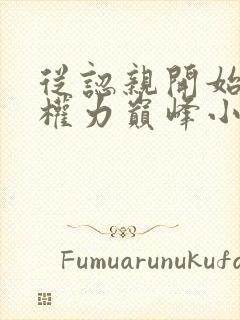 從認親開始
權力巔峰小
Fumuarunukufc